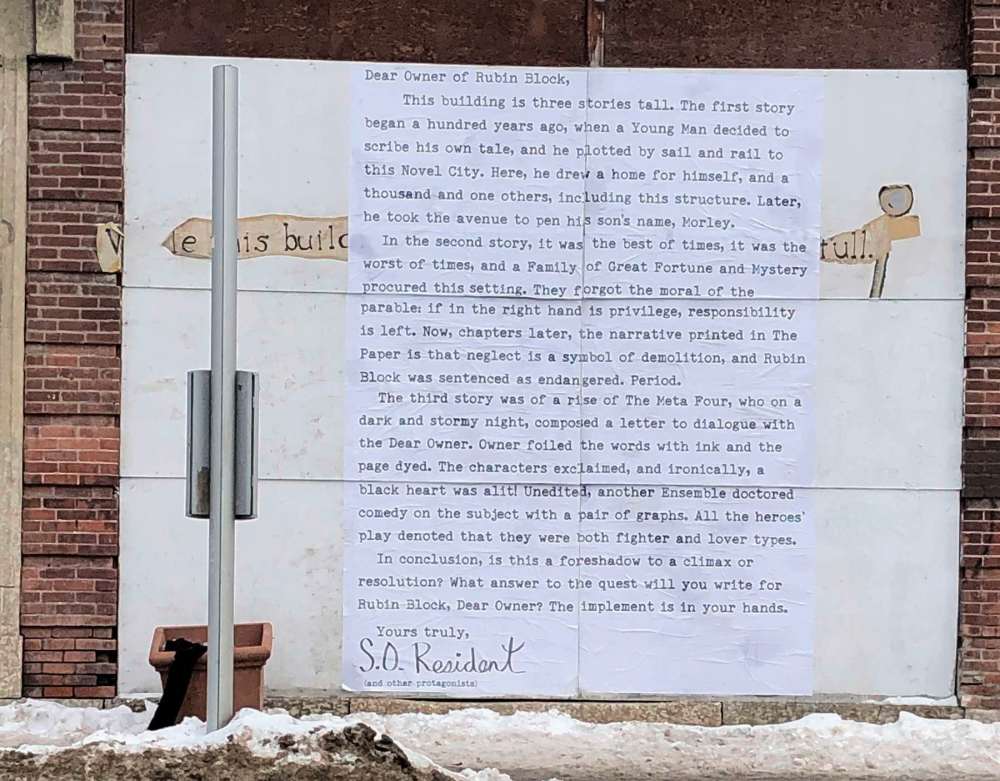 Dear Owner of Rubin Block,
This building is three stories tall. The first story
began a hundred years ago, when a Young Man decided to
scribe his own tale, and he plotted by sail and rail to
this Novel City. Here, he drew a home for himself, and a
thousand and one others, including this structure. Later,
he took the avenue to pen his son's name, Morley.
In the second story, it was the best of times, it was the
worst of times, and a Family of Great Fortune and Mystery
procured this setting. They forgot the moral of the
parable: if in the right hand is privilege, responsibility
is left. Now, chapters later, the narrative printed in The
Paper is that neglect is a symbol of demolition, and Rubin
Block was sentenced as endangered. Period.
The third story was of a rise of The Meta Four, who on a
dark and stormy night, composed a letter to dialogue with
the Dear Owner. Owner foiled the words with ink and the
page dyed. The characters exclaimed, and ironically, a
black heart was alit! Unedited, another Ensemble doctored
comedy on the subject with a pair of graphs. All the heroes'
play denoted that they were both fighter and lover types.
In conclusion, is this a foreshadow to a climax or
resolution? What answer to the quest will you write for
Rubin Block, Dear Owner? The implement is in your hands.
Yours truly,
S.O. Resident
(and other protagonists)